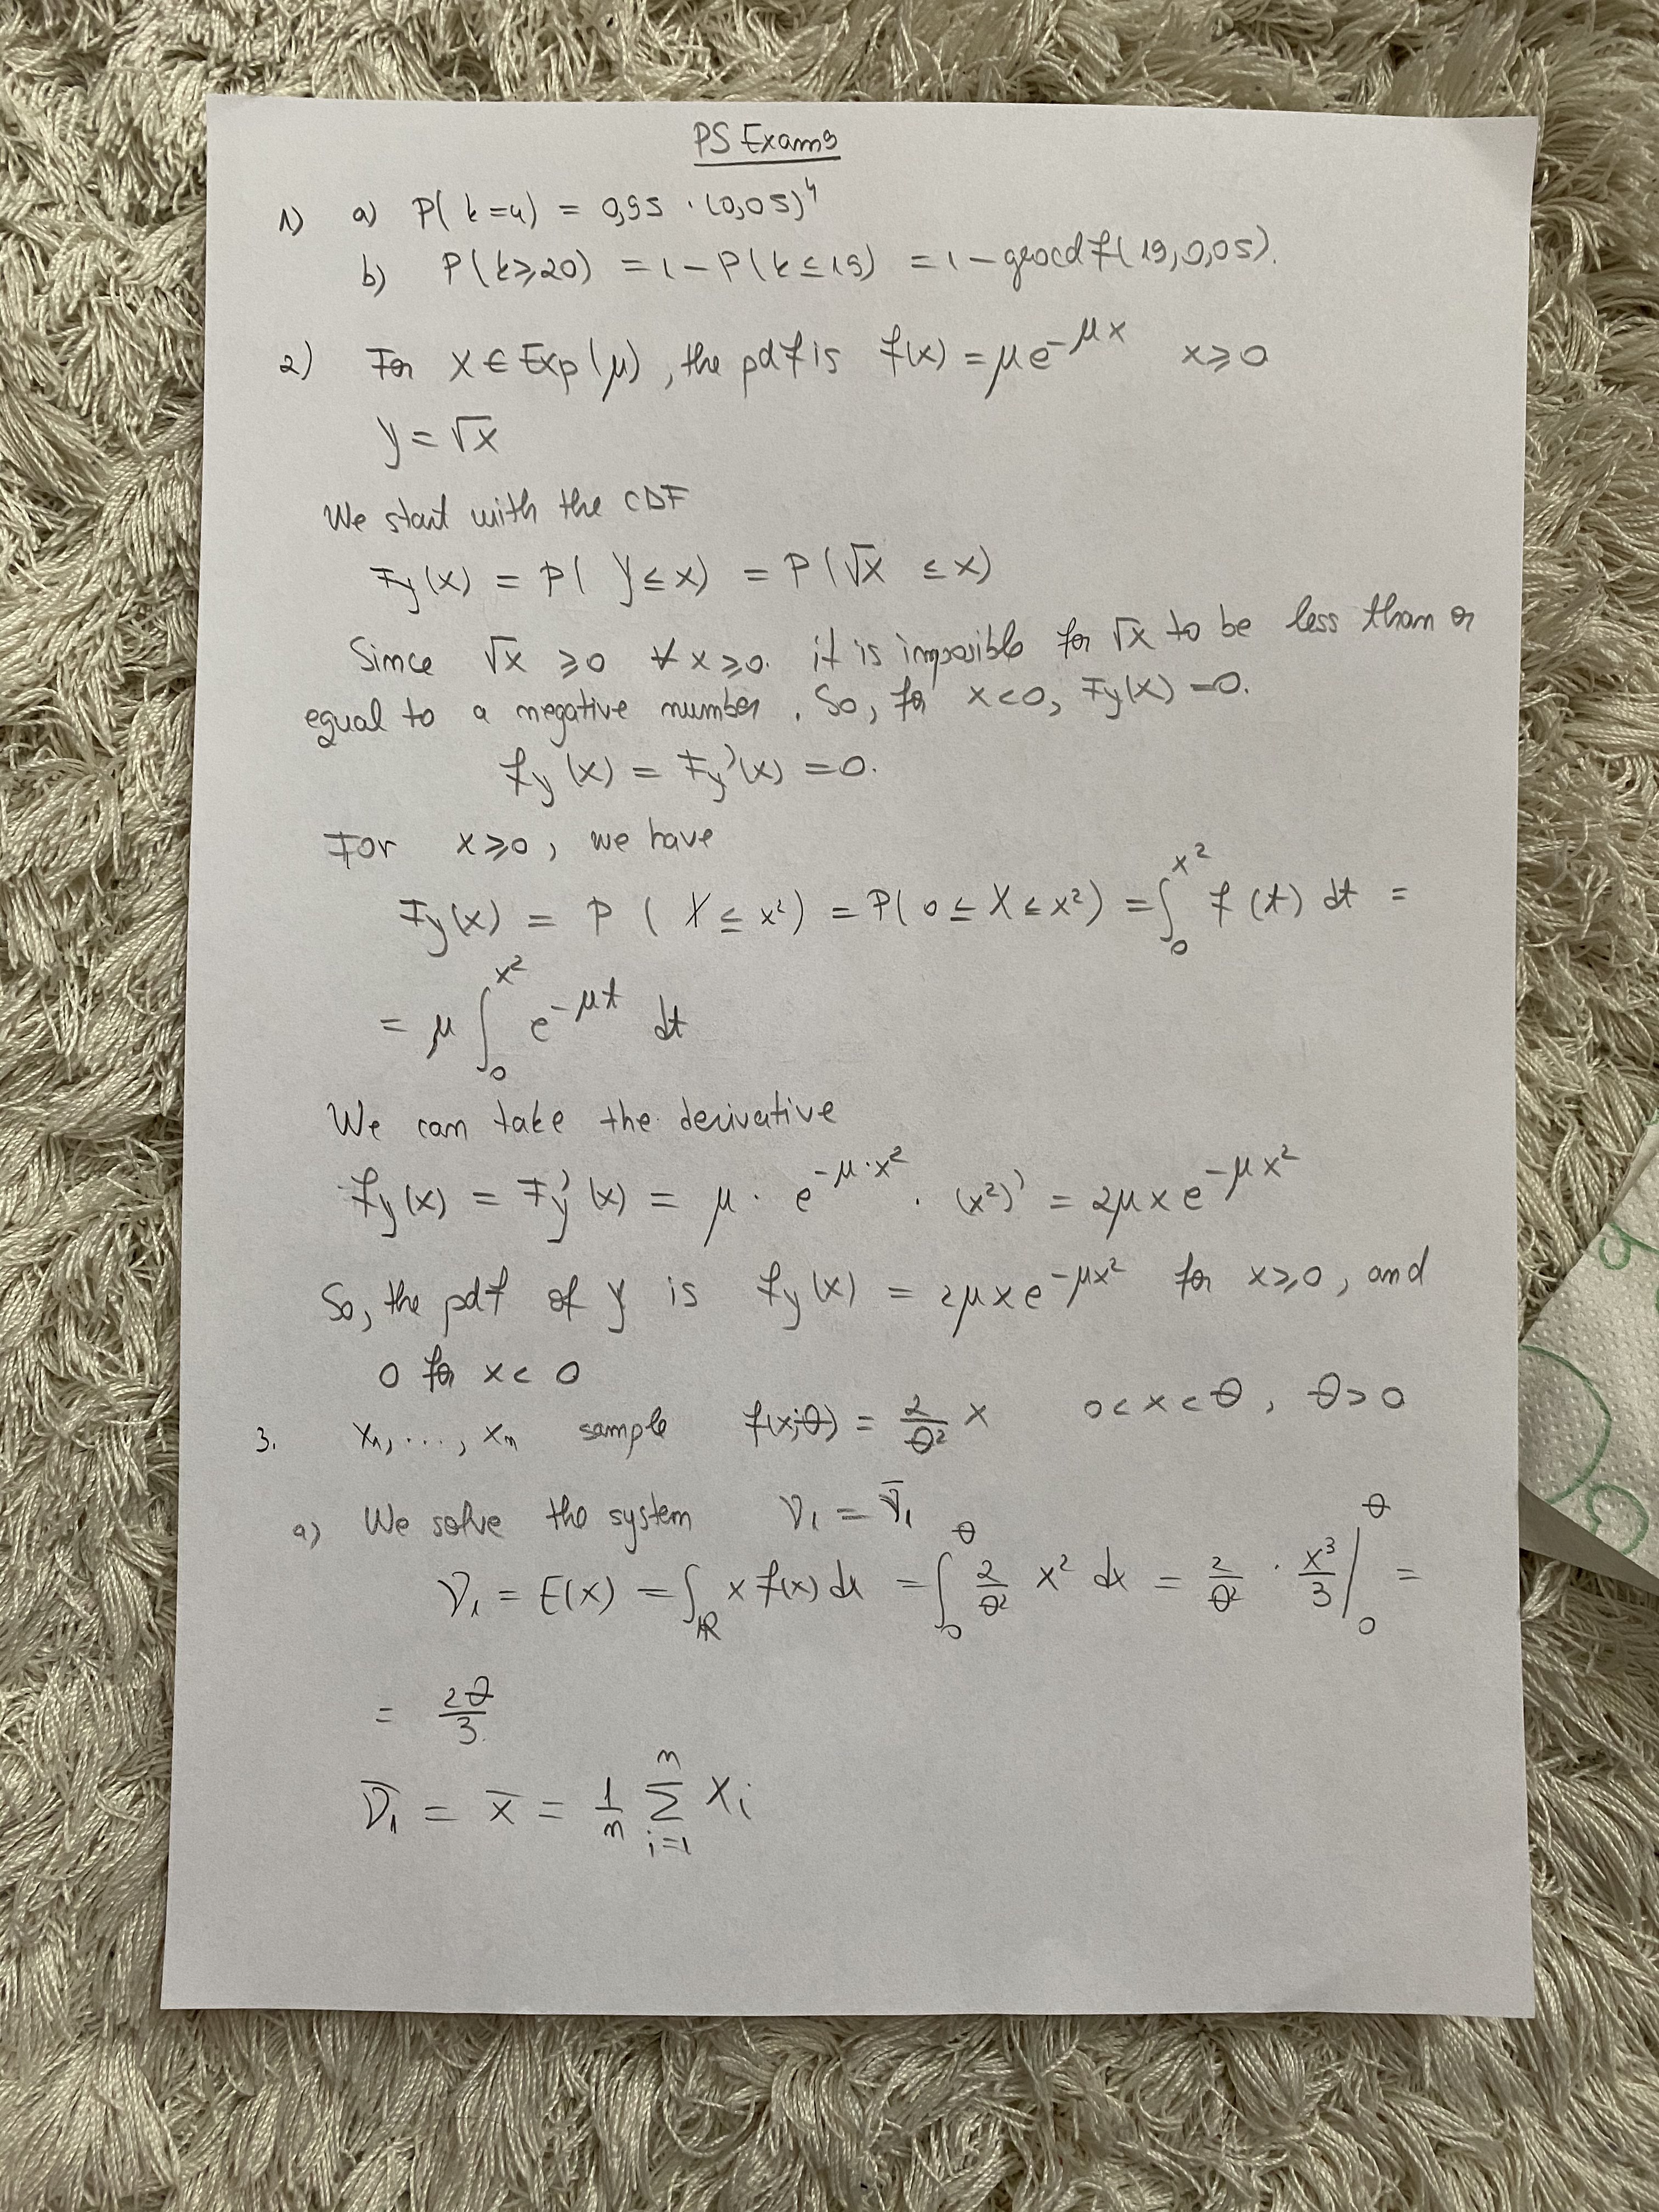 PS Exams
1) a) P(k=4) = 0,95 · (0,05)⁴
b) P(k≥20) = 1 - P(k≤19) = 1 - geocdf(19, 0,05).
2) For X ∈ Exp(μ), the pdf is f(x) = μe^{-μx} x≥0
Y = √X
We start with the CDF
F_Y(x) = P(Y≤x) = P(√X ≤x)
Since √x ≥0 ∀ x≥0. it is imposible for √x to be less than or
equal to a negative number. So, for x<0, F_Y(x) =0.
f_Y(x) = F_Y'(x) =0.
For x≥0, we have
F_Y(x) = P(X ≤ x²) = P(0 ≤ X ≤ x²) = ∫_0^{x²} f(t) dt =
= μ ∫_0^{x²} e^{-μt} dt
We can take the derivative
f_Y(x) = F_Y'(x) = μ · e^{-μ·x²} · (x²)' = 2μxe^{-μx²}
So, the pdf of Y is f_Y(x) = 2μxe^{-μx²} for x≥0, and
0 for x< 0
3. X₁, ..., Xₙ sample f(x;θ) = 2/θ² x 0<x<θ, θ>0
a) We solve the system ν₁ = ν̄₁
ν₁ = E(X) = ∫_ℝ x f(x) dx = ∫_0^θ 2/θ² x² dx = 2/θ² · x³/3 |_0^θ =
= 2θ/3
ν̄₁ = x̄ = 1/n ∑_{i=1}^n Xᵢ